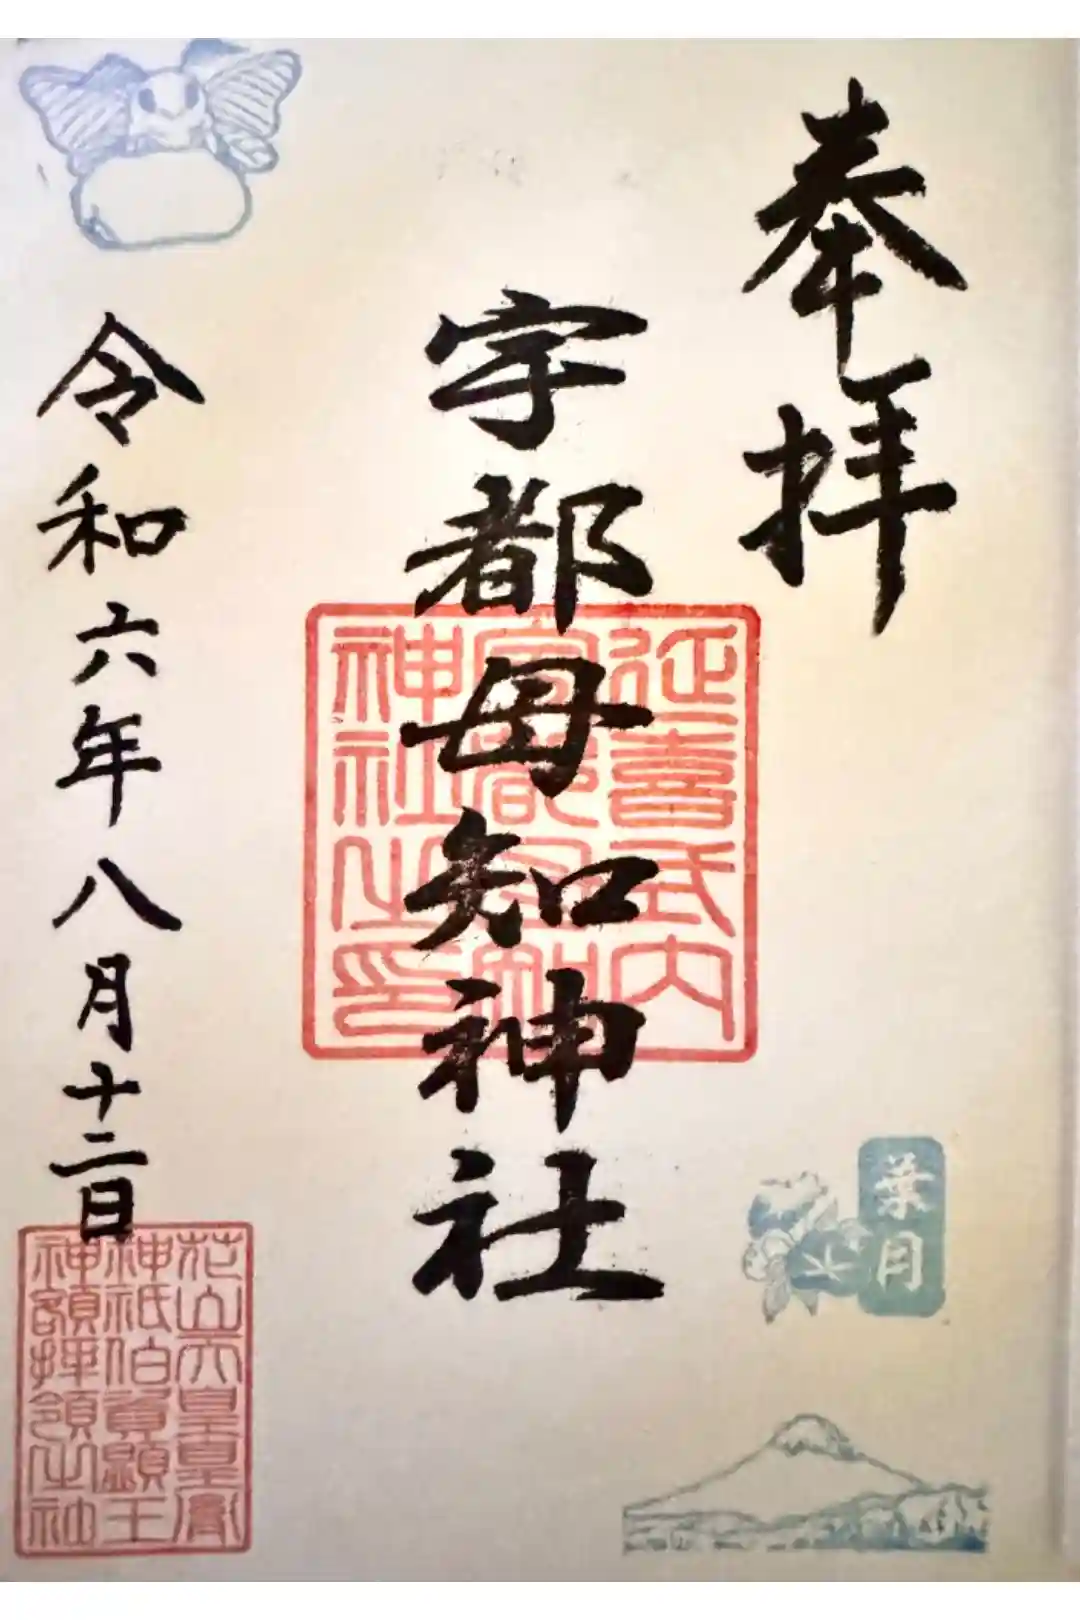 奉拝
延喜式内
宇都母知
神社之印
宇都母知神社
葉月
令和六年八月十二日
花山天皇皇裔
神祇伯資顕王
神額拝領之社